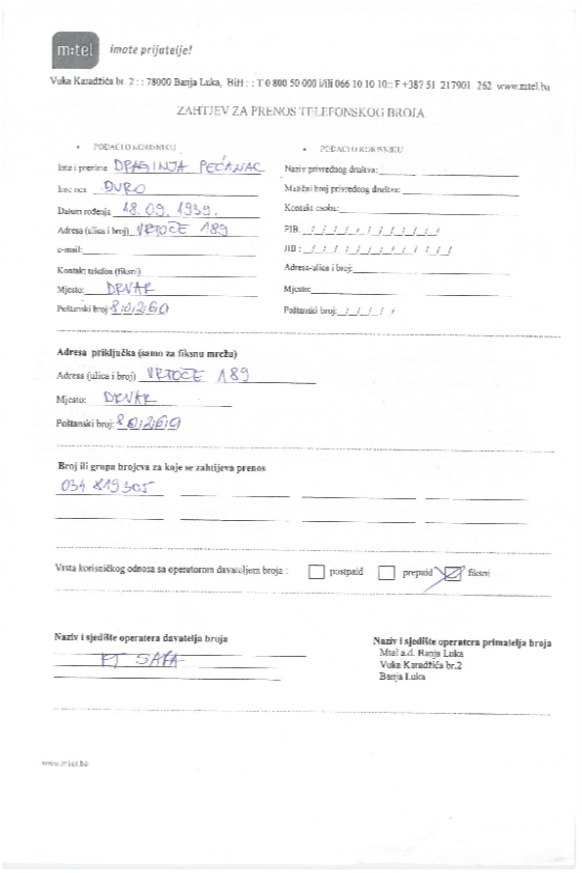 m:tel imate prijatelje!
Vuka Karadžića br. 2 : : 78000 Banja Luka, BiH : : T 0 800 50 000 i/ili 066 10 10 10:: F +387 51 217901 262 www.mtel.ba
ZAHTJEV ZA PRENOS TELEFONSKOG BROJA
• PODACI O KORISNIKU
Ime i prezime DRAGINJA PEĆANAC
Ime oca ĐURO
Datum rođenja 18.09.1939.
Adresa (ulica i broj) VRTOČE 189
e-mail:
Kontakt telefon (fiksni)
Mjesto: DRVAR
Poštanski broj: 8,0,2,6,0
• PODACI O KORISNIKU
Naziv privrednog društva:
Matični broj privrednog društva:
Kontakt osoba:
PIB: _/_/_/_/_/_/_/_/_/_/_/_
JIB: _/_/_/_/_/_/_/_/_/_/_/_/_
Adresa-ulica i broj:
Mjesto:
Poštanski broj: _/_/_/_/_
Adresa priključka (samo za fiksnu mrežu)
Adresa (ulica i broj) VRTOČE 189
Mjesto: DRVAR
Poštanski broj: 8,0,2,6,0
Broj ili grupa brojeva za koje se zahtijeva prenos
034 819305
Vrsta korisničkog odnosa sa operatorom davateljem broja : postpaid prepaid fiksni
Naziv i sjedište operatera davatelja broja
Naziv i sjedište operatera primatelja broja
Mtel a.d. Banja Luka
Vuka Karadžića br.2
Banja Luka
www.mtel.ba